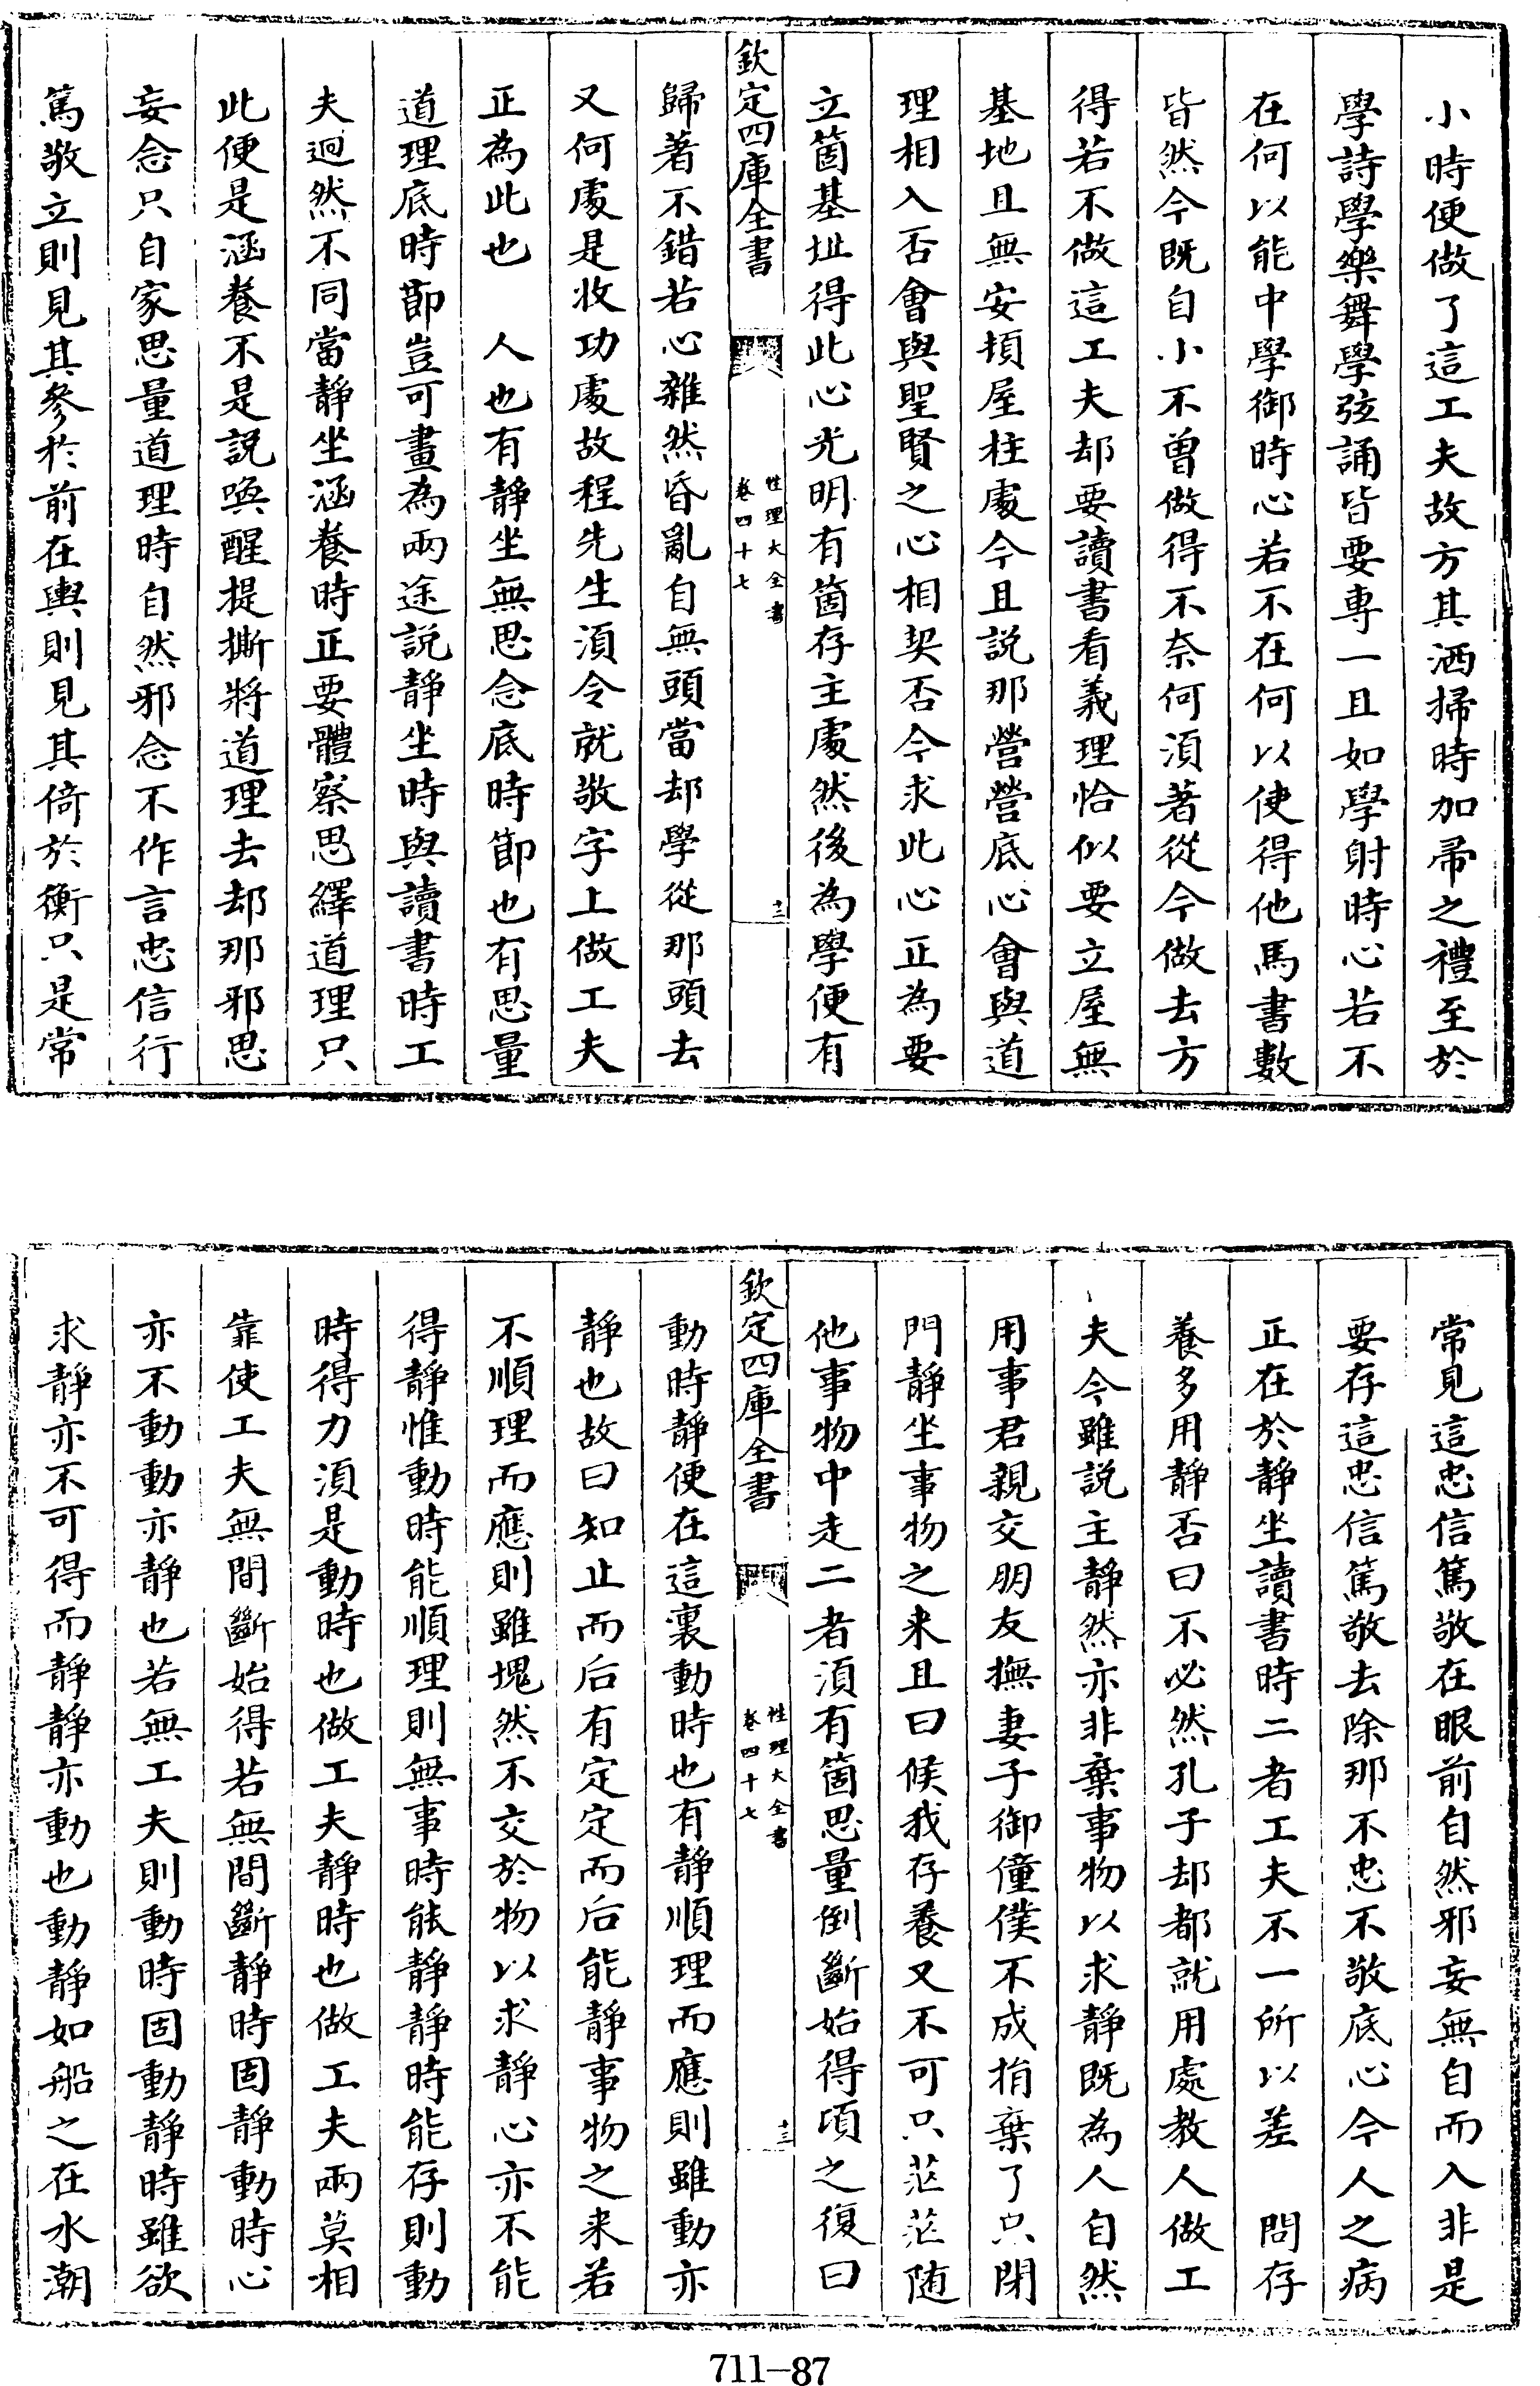 小時便做了這工夫故方其洒掃時加帚之禮至於
學詩學樂舞學弦誦皆要専一且如學射時心若不
在何以能中學御時心若不在何以使得他馬書數
皆然今既自小不曽做得不奈何須著從今做去方
得若不做這工夫却要讀書看義理恰似要立屋無
基地且無安頓屋柱處今且説那營營底心會與道
理相入否會與聖賢之心相契否今求此心正為要
立箇基址得此心光明有箇存主處然後為學便有
欽定四庫全書
性理大全書
卷四十七
十三
歸著不錯若心雜然昏亂自無頭當却學從那頭去
又何處是收功處故程先生湏令就敬字上做工夫
正為此也　人也有静坐無思念底時節也有思量
道理底時節豈可畫為兩途説静坐時與讀書時工
夫迥然不同當静坐涵養時正要體察思繹道理只
此便是涵養不是説喚醒提撕將道理去却那邪思
妄念只自家思量道理時自然邪念不作言忠信行
篤敬立則見其參於前在輿則見其倚於衡只是常
常見這忠信篤敬在眼前自然邪妄無自而入非是
要存這忠信篤敬去除那不忠不敬底心今人之病
正在於静坐讀書時二者工夫不一所以差　問存
養多用静否曰不必然孔子却都就用處教人做工
夫今雖説主静然亦非棄事物以求静既為人自然
用事君親交朋友撫妻子御僮僕不成捐棄了只閉
門静坐事物之来且曰候我存養又不可只茫茫随
他事物中走二者湏有箇思量倒斷始得頃之復曰
欽定四庫全書
性理大全書
卷四十七
十三
動時静便在這裏動時也有静順理而應則雖動亦
静也故曰知止而后有定定而后能静事物之来若
不順理而應則雖塊然不交於物以求静心亦不能
得静惟動時能順理則無事時能静静時能存則動
時得力湏是動時也做工夫静時也做工夫兩莫相
靠使工夫無間斷始得若無間斷静時固静動時心
亦不動動亦静也若無工夫則動時固動静時雖欲
求静亦不可得而静静亦動也動静如船之在水潮
711-87